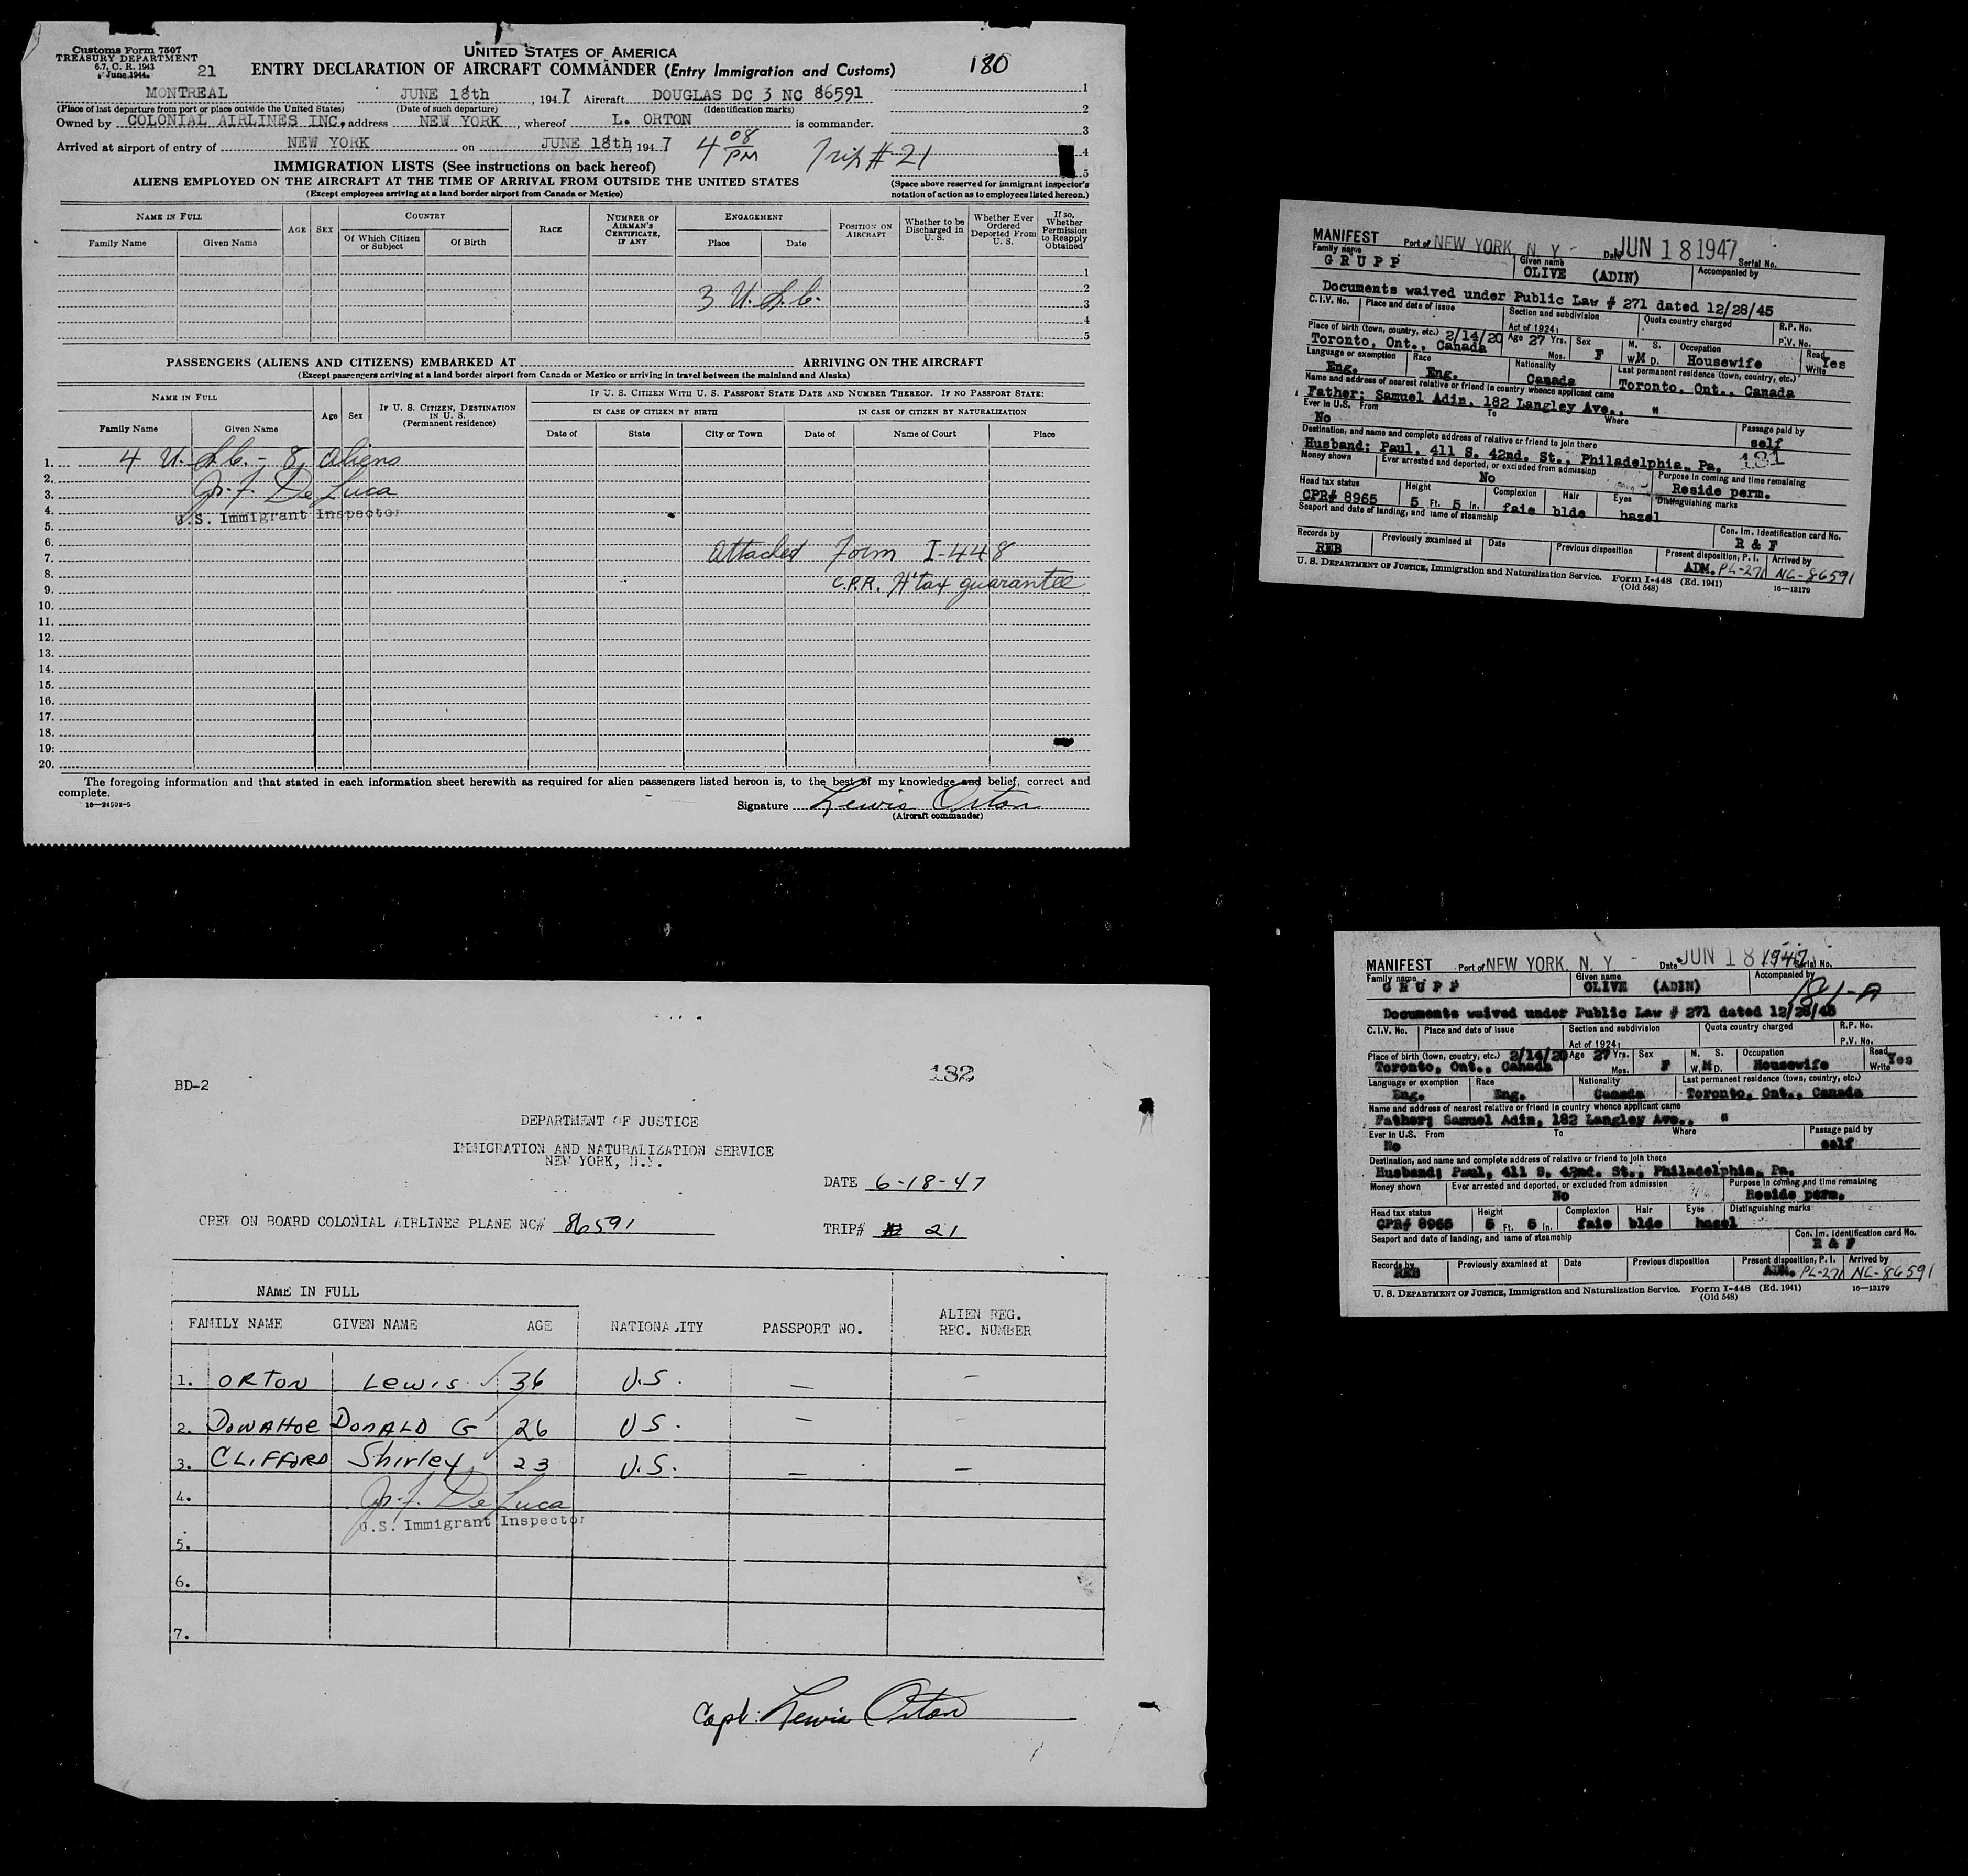 Customs Form 7507
TREASURY DEPARTMENT
6.7, C. R. 1943
June, 1944.
21
UNITED STATES OF AMERICA
ENTRY DECLARATION OF AIRCRAFT COMMANDER (Entry Immigration and Customs)
180
MONTREAL JUNE 18th, 1947 Aircraft DOUGLAS DC 3 NC 86591
(Place of last departure from port or place outside the United States) (Date of such departure) (Identification marks)
Owned by COLONIAL AIRLINES INC., address NEW YORK, whereof L. ORTON is commander.
Arrived at airport of entry of NEW YORK on JUNE 18th, 1947 4 08 PM Trip # 21
1
2
3
4
5
IMMIGRATION LISTS (See instructions on back hereof)
ALIENS EMPLOYED ON THE AIRCRAFT AT THE TIME OF ARRIVAL FROM OUTSIDE THE UNITED STATES
(Except employees arriving at a land border airport from Canada or Mexico)
(Space above reserved for immigrant inspector's notation of action as to employees listed hereon.)
NAME IN FULL AGE SEX COUNTRY RACE NUMBER OF AIRMAN'S CERTIFICATE, IF ANY ENGAGEMENT POSITION ON AIRCRAFT Whether to be Discharged in U. S. Whether Ever Ordered Deported From U. S. If so, Whether Permission to Reapply Obtained
Family Name Given Name Of Which Citizen or Subject Of Birth Place Date
1
2
3 U.S.C.
3
4
5
PASSENGERS (ALIENS AND CITIZENS) EMBARKED AT ARRIVING ON THE AIRCRAFT
(Except passengers arriving at a land border airport from Canada or Mexico or arriving in travel between the mainland and Alaska)
NAME IN FULL Age Sex IF U. S. CITIZEN, DESTINATION IN U. S. (Permanent residence) IF U. S. CITIZEN WITH U. S. PASSPORT STATE DATE AND NUMBER THEREOF. IF NO PASSPORT STATE:
IN CASE OF CITIZEN BY BIRTH IN CASE OF CITIZEN BY NATURALIZATION
Family Name Given Name Date of State City or Town Date of Name of Court Place
1. 4 U.S.C. - 8 Aliens
2.
3. De Luca
4.
U.S. Immigrant Inspector
5.
6.
7. Attached Form I-448
8.
9. C.P.R. H'tax guarantee
10.
11.
12.
13.
14.
15.
16.
17.
18.
19.
20.
The foregoing information and that stated in each information sheet herewith as required for alien passengers listed hereon is, to the best of my knowledge and belief, correct and
complete.
16—24593-5
Signature Lewis Orton
(Aircraft commander)
MANIFEST Port of NEW YORK, N. Y. Date JUN 18 1947 Serial No.
Family name GRUPP Given name OLIVE (ADIN) Accompanied by
Documents waived under Public Law # 271 dated 12/28/45
C.I.V. No. Place and date of issue Section and subdivision Act of 1924: Quota country charged R.P. No. P.V. No.
Place of birth (town, country, etc.) 2/14/20 Age 27 Yrs. Mos. Sex F M. S. W. M D. Occupation Read Yes
Toronto, Ont., Canada Housewife Write
Language or exemption Race Nationality Last permanent residence (town, country, etc.)
Eng. Eng. Canada Toronto, Ont., Canada
Name and address of nearest relative or friend in country whence applicant came
Father: Samuel Adin, 182 Langley Ave., "
Ever in U.S. From To Where Passage paid by
No self
Destination, and name and complete address of relative or friend to join there
Husband: Paul, 411 S. 42nd. St., Philadelphia, Pa. 181
Money shown Ever arrested and deported, or excluded from admission Purpose in coming and time remaining
No Reside perm.
Head tax status Height Complexion Hair Eyes Distinguishing marks
CPR# 8965 5 Ft. 5 In. faie blde hazel
Seaport and date of landing, and name of steamship Con. Im. Identification card No.
R & F
Records by Previously examined at Date Previous disposition Present disposition, P. I. Arrived by
REB ADM. PL-271 NC-86591
U. S. DEPARTMENT OF JUSTICE, Immigration and Naturalization Service. Form I-448 (Ed. 1941) 16—13179
(Old 548)
MANIFEST Port of NEW YORK, N. Y. Date JUN 18 1947 Serial No.
Family name GRUPP Given name OLIVE (ADIN) Accompanied by 181-A
Documents waived under Public Law # 271 dated 12/28/45
C.I.V. No. Place and date of issue Section and subdivision Act of 1924: Quota country charged R.P. No. P.V. No.
Place of birth (town, country, etc.) 2/14/20 Age 27 Yrs. Mos. Sex F M. S. W. M D. Occupation Read Yes
Toronto, Ont., Canada Housewife Write
Language or exemption Race Nationality Last permanent residence (town, country, etc.)
Eng. Eng. Canada Toronto, Ont., Canada
Name and address of nearest relative or friend in country whence applicant came
Father; Samuel Adin, 182 Langley Ave., "
Ever in U.S. From To Where Passage paid by
No self
Destination, and name and complete address of relative or friend to join there
Husband; Paul, 411 S. 42nd. St., Philadelphia, Pa.
Money shown Ever arrested and deported, or excluded from admission Purpose in coming and time remaining
No Reside perm.
Head tax status Height Complexion Hair Eyes Distinguishing marks
CPR# 8965 5 Ft. 5 In. faie blde hazel
Seaport and date of landing, and name of steamship Con. Im. Identification card No.
R & F
Records by Previously examined at Date Previous disposition Present disposition, P. I. Arrived by
REB ADM. PL-271 NC-86591
U. S. DEPARTMENT OF JUSTICE, Immigration and Naturalization Service. Form I-448 (Ed. 1941) 16—13179
(Old 548)
BD-2
182
DEPARTMENT OF JUSTICE
IMMIGRATION AND NATURALIZATION SERVICE
NEW YORK, N.Y.
DATE 6-18-47
CREW ON BOARD COLONIAL AIRLINES PLANE NC# 86591 TRIP# 21
NAME IN FULL
FAMILY NAME GIVEN NAME AGE NATIONALITY PASSPORT NO. ALIEN REG. REC. NUMBER
1. ORTON Lewis 36 U.S. — —
2. DONAHOE DONALD G 26 US. — —
3. CLIFFORD Shirley 23 U.S. — —
4. De Luca
U.S. Immigrant Inspector
5.
6.
7.
Capt. Lewis Orton